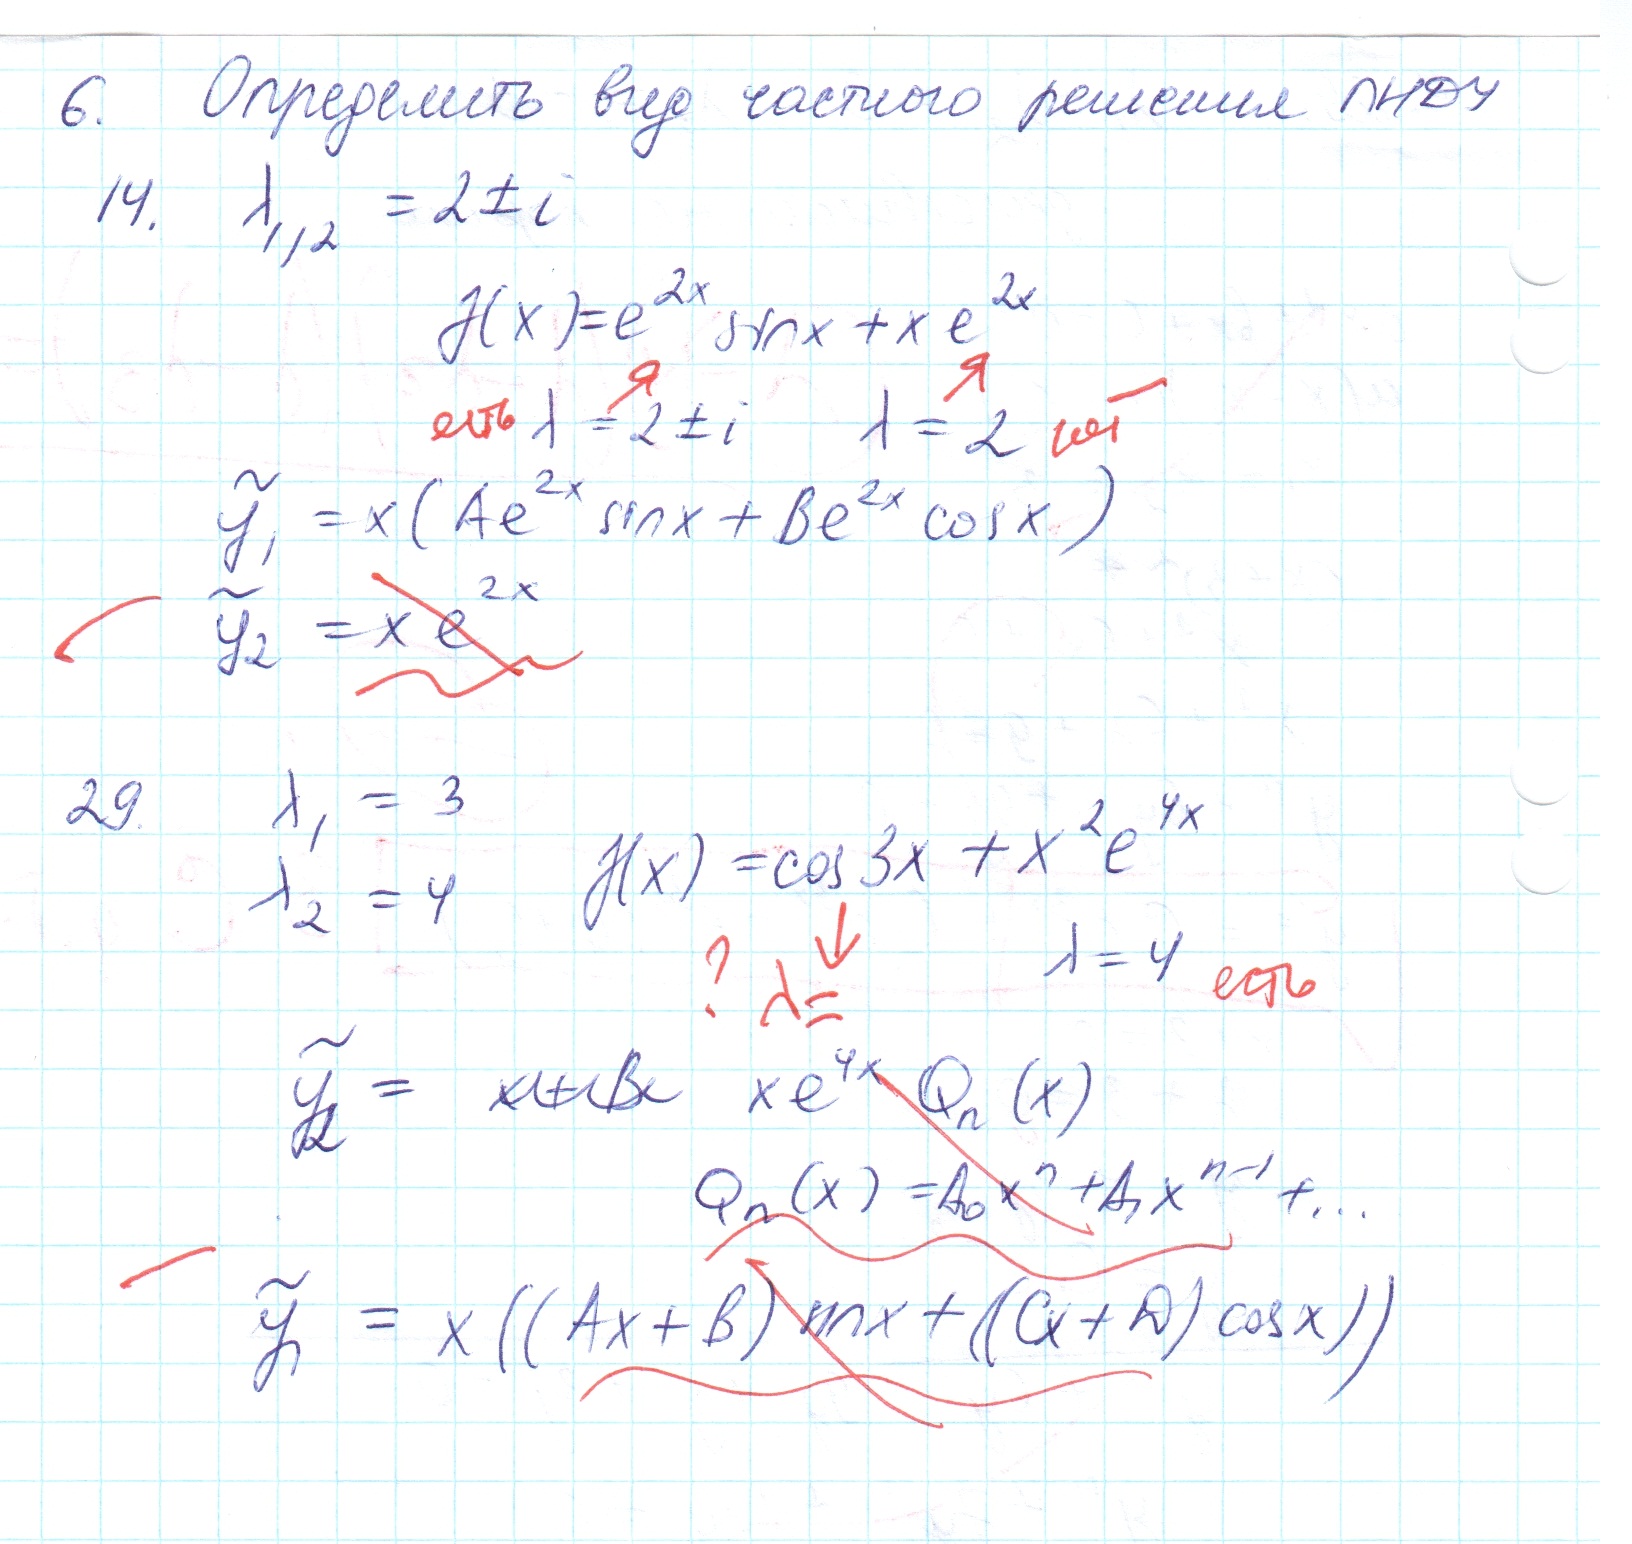 6. Определить вид частного решения ЛНДУ
14. λ₁,₂ = 2 ± i
f(x) = e^{2x} sinx + x e^{2x}
есть λ = 2 ± i λ = 2 нет
ỹ₁ = x(Ae^{2x} sinx + Be^{2x} cosx)
ỹ₂ = x e^{2x}
29. λ₁ = 3
f(x) = cos 3x + x² e^{4x}
λ₂ = 4
? λ = λ = 4 есть
ỹ₂ = x e^{4x} Qₙ(x)
Qₙ(x) = A₀xⁿ + A₁x^{n-1} + ...
ỹ₁ = x((Ax + B) sinx + ((Cx + D) cosx))